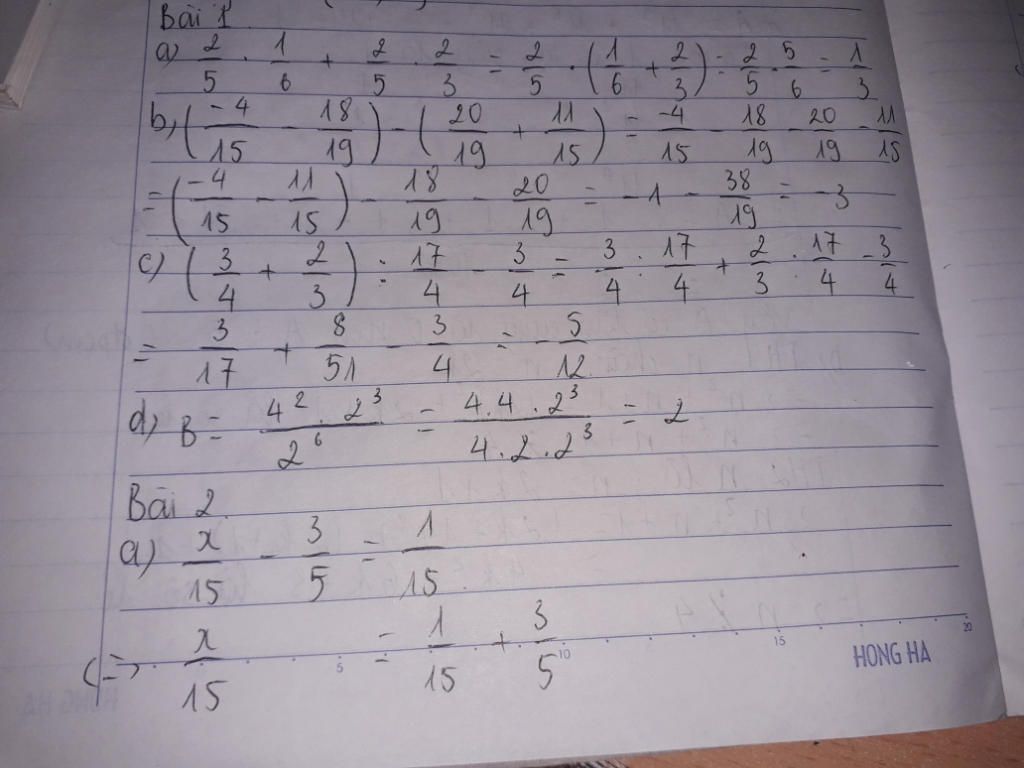 Bài 1
a) 2/5 . 1/6 + 2/5 . 2/3 = 2/5 . (1/6 + 2/3) = 2/5 . 5/6 = 1/3
b) (-4/15 - 18/19) - (20/19 + 11/15) = -4/15 - 18/19 - 20/19 - 11/15
= (-4/15 - 11/15) - 18/19 - 20/19 = -1 - 38/19 = -3
c) (3/4 + 2/3) : 17/4 - 3/4 = 3/4 : 17/4 + 2/3 : 17/4 - 3/4
= 3/17 + 8/51 - 3/4 = -5/12
d) B = 4² . 2³ / 2⁶ = 4.4.2³ / 4.2.2³ = 2
Bài 2
a) x/15 - 3/5 = 1/15
(=) x/15 = 1/15 + 3/5
5 10 15 20
HONG HA